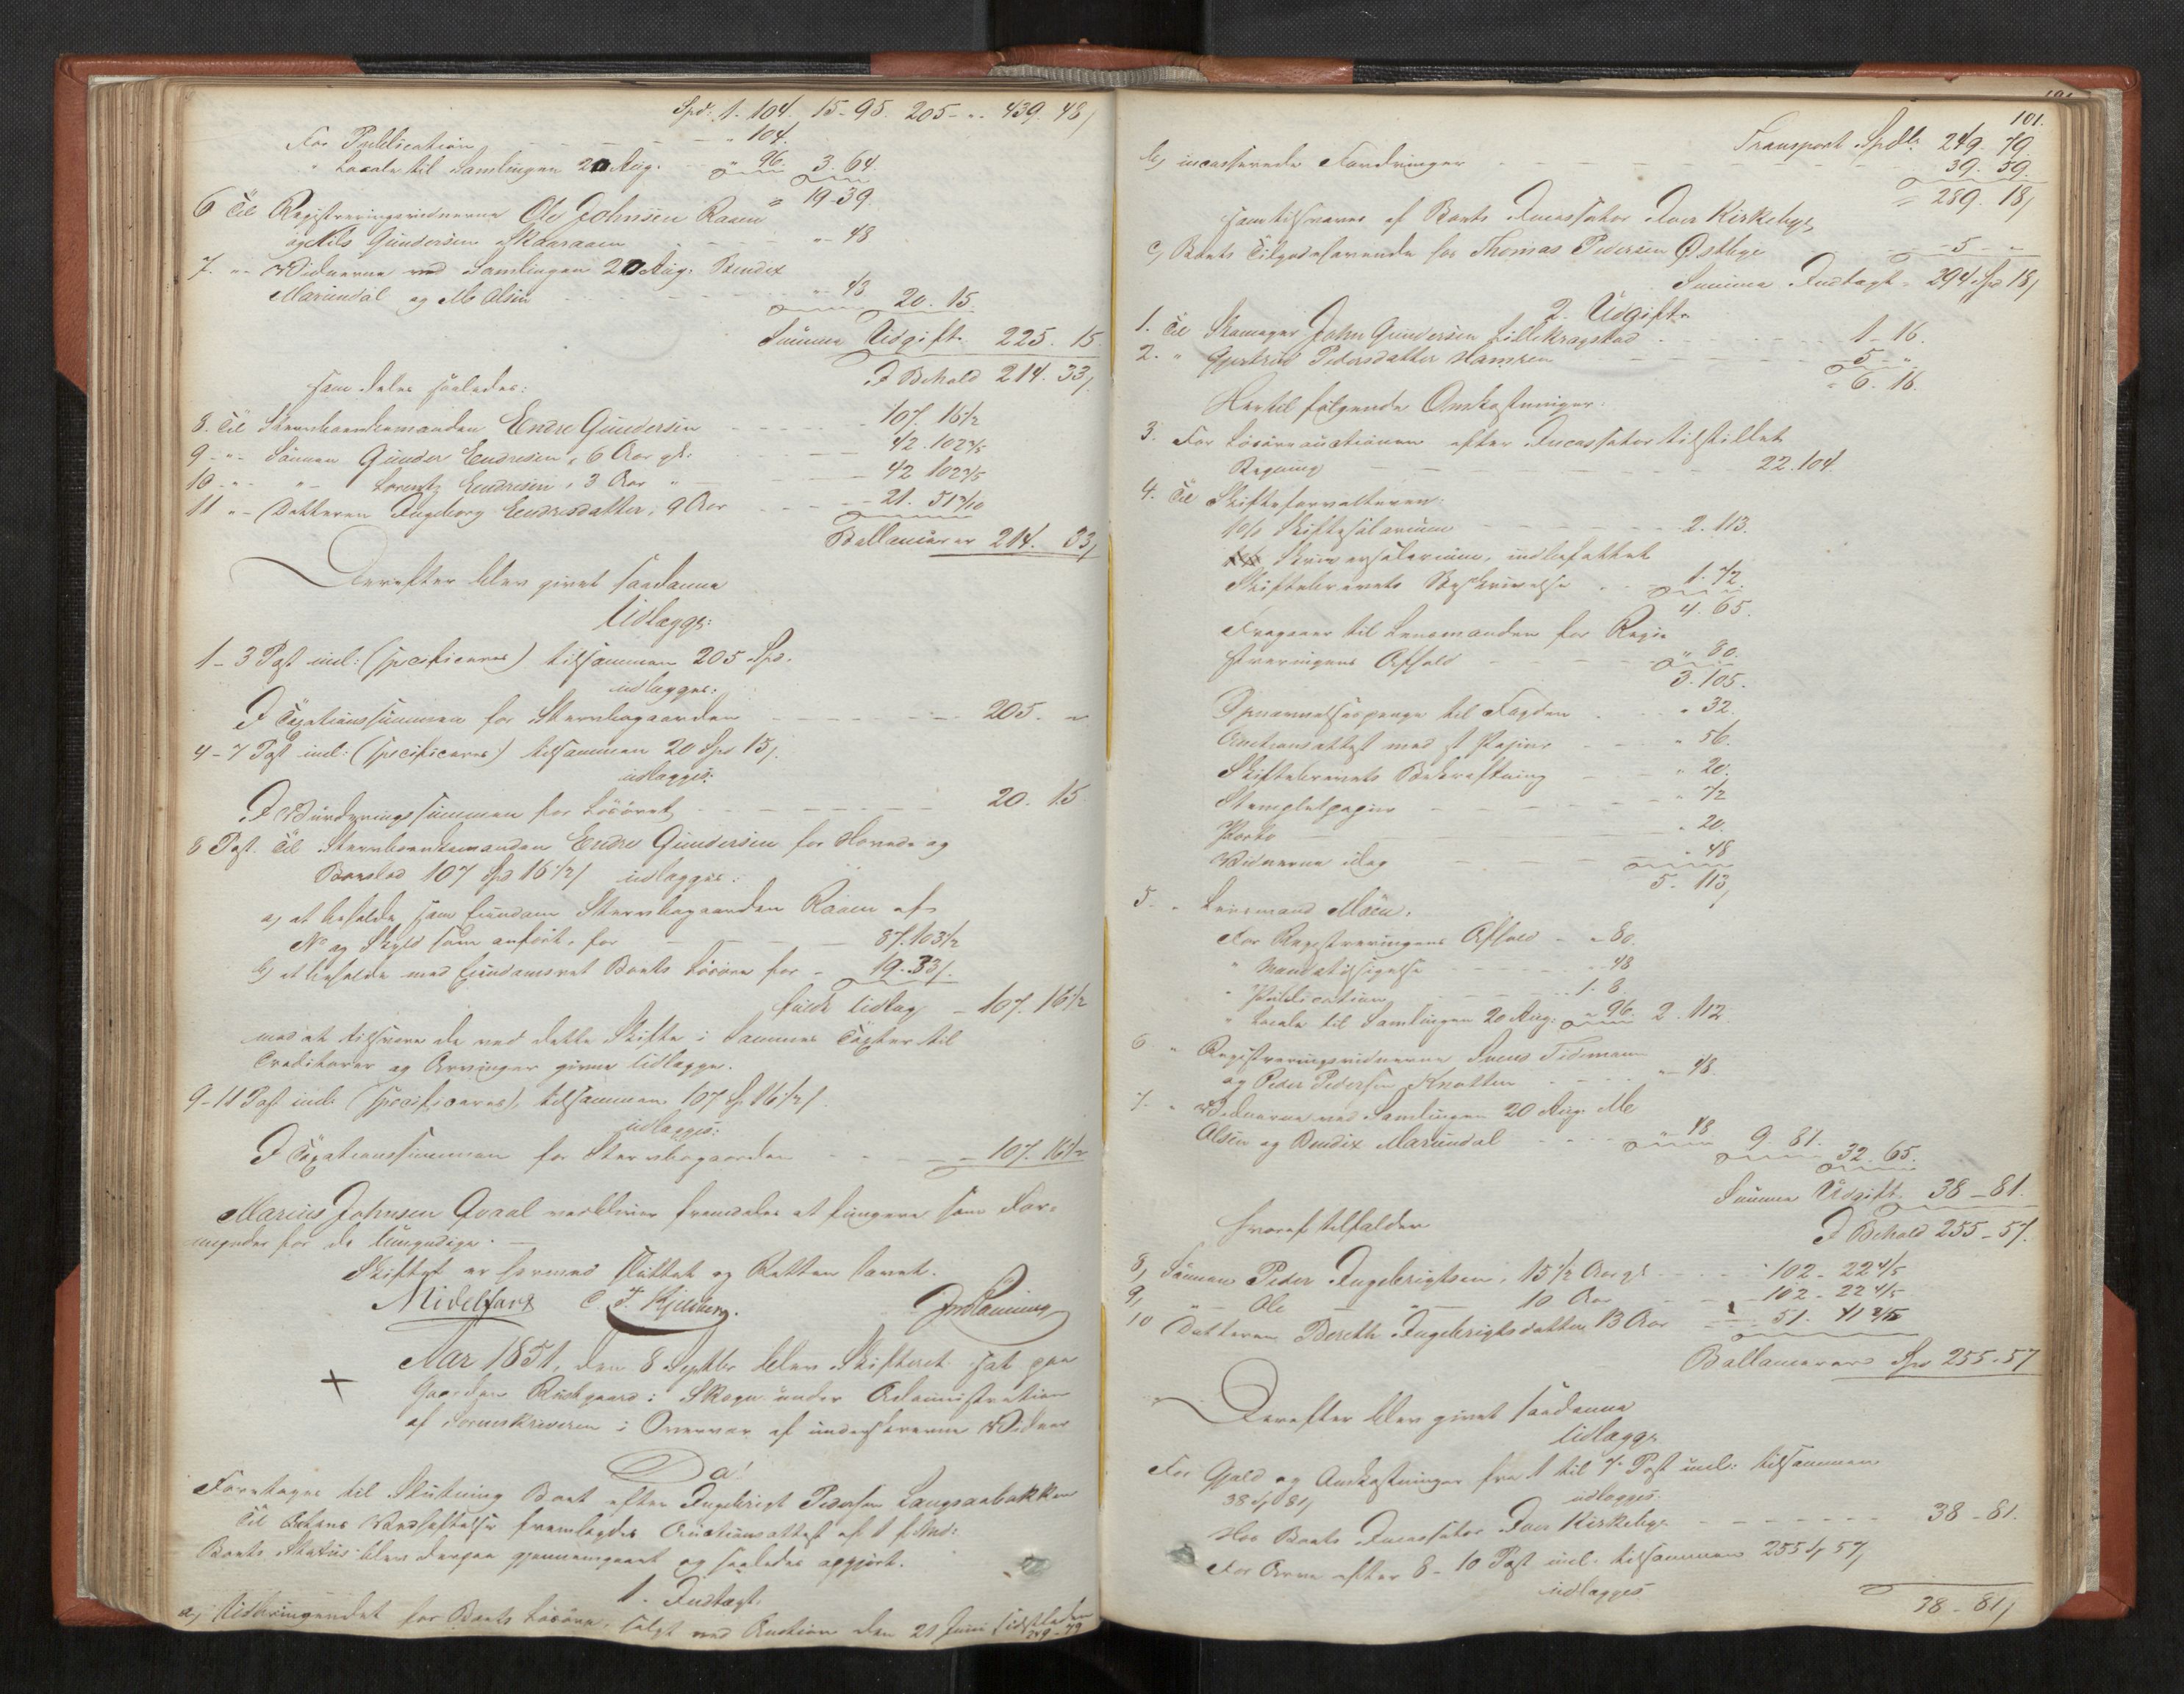 Spd: 1. 104. 15-95. 205- " 439. 48/
For Publication " 104.
" Locale til Samlingen 20 Aug: " 96. 3. 64.
" 19-39.
6 Til Registreringsvidnerne Ole Johnsen Raaen
og Nils Gundersen Skaaraaen "- 48
7. "- Vidnerne ved Samlingen 20 Aug: Bendix
Marindal og M: Olsen "- 48 20. 15.
Summa Udgift. 225. 15
I Behold 214. 33/
som deles saaledes:
8. Til Stervboenkemanden Endre Gundersen 107. 16 1/2
9 -"- Sønnen Gunder Endresen, 6 Aar gl: 42. 102 3/5
10 -"- "- Lorentz Endresen, 3 Aar " 42 102 3/5
11 "- Datteren Ingeborg Endresdatter, 9 Aar 21. 51 3/10
Ballancerer 214. 33/
Derefter blev givet saadanne
Udlægge:
1-3 Post incl: (specificeres) tilsammen 205 Spd.
udlægges:
I Taxationssummen for Stervbogaarden 205. "
4-7 Post incl: (specificeres) tilsammen 20 Spd 15/.
udlægges:
I Vurderingssummen for Løsøret 20. 15
8 Post. Til Stervboenkemanden Endre Gundersen for Hoved og
Boeslod 107 Spd 16 1/2/ udlægges:
a, at beholde som Eiendom Stervbogaarden Raaen af
No og Skyld som anført, for 87. 103 1/2
b, at beholde med Eiendomsret Boets Løsøre for - 19. 33/.
fuldt Udlæg - 107. 16 1/2
mod at tilsvare de ved dette Skifte i Sammes Taxter til
Creditorer og Arvinger givne Udlægge.
9-11 Post incl: (specificeres), tilsammen 107 Sp. 16 1/2/.
udlægges:
I Taxationssummen for Stervbogaarden 107. 16 1/2
Marius Johnsen Qvaal vedbliver fremdeles at fungere som For-
mynder for de Umyndige. -
Skiftet er hermed sluttet og Retten hævet.
Midelfart C. F. Kjelsberg.
Aar 1851, den 8 Septbr blev Skifteret sat paa
Gaarden Rostgaard i Skogn under Administration
af Sorenskriveren i Overvær af underskrevne Vidner
Da!
Foretages til Slutning Boet efter Ingebrigt Pedersen Langsaabakken
Boets Status blev derpaa gjennemgaaet og saaledes opgjort.
1. Indtægt.
a, Udbringendet for Boets Løsøre, solgt ved Auction den 21 Juni sidstleden
249-79
101.
Transport Spdlr 249. 79
b, incasserede Fordringer 39. 59.
" 289. 18/
som tilsvares af Boets Incassator Iver Kirkebye
c, Boets Tilgodehavende hos Thomas Pedersen Østbye -5- "
Summa Indtægt - 294 Spd 18/
2. Udgift.
1. Til Skomager John Gundersen Lillekragstad 1-16.
2. " Gjertrud Pedersdatter Hamren -5- "
" 6. 16.
Hertil følgende Omkostninger:
3. For Løsøreauctionen efter Incassator tilstillet
Regning 22. 104.
4. Til Skifteforvalteren:
10/0 Skiftesalarium 2. 113.
Skriversalarium, indbefattet
Skiftebrevets Beskrivelse 1. 72.
4. 65.
Fragaaer til Lensmanden for Regi-
streringens Afhold " 80.
3. 105.
Opnævnelsespenge til Fogden " 32.
Auctionsattest med st Papiir " 56.
Skiftebrevets Bekræftning " 20.
Stempletpapiir " 72
Porto " 20.
Vidnerne idag " 48
5. 113/
5. " Lensmand Alséen:
For Registreringens Afhold - " 80.
" Mandstilsigelse " 48
" Publication 1. 8.
" Locale til Samlingen 20 Aug: " 96. 2. 112
6 " Registreringsvidnerne Svens Tidemann
og Peder Pedersen Knotten "- 48
7. " Vidnerne ved Samlingen 20 Aug. M:
Olsen og Bendix Marindal " 48 9. 81. 32. 65.
Summa Udgift. 38-81.
I Behold 255-57.
hvoraf tilfalder
8, Sønnen Peder Ingebrigtsen, 15 1/2 Aar gl 102-22 4/5
9, "- Ole -"- 10 Aar 102-22 4/5
10 Datteren Bereth Ingebrigtsdatter 13 Aar 51. 11 2/5
Ballancerer Spd 255-57
Derefter blev givet saadanne
Udlægge
For Gjæld og Omkostninger fra 1 til 7 Post incl: tilsammen
38 Sp 81/ udlægges:
Hos Boets Incassator Iver Kirkebye 38-81.
For Arven efter 8-10 Post incl: tilsammen 255 Sp 57/
udlægges
38-81/